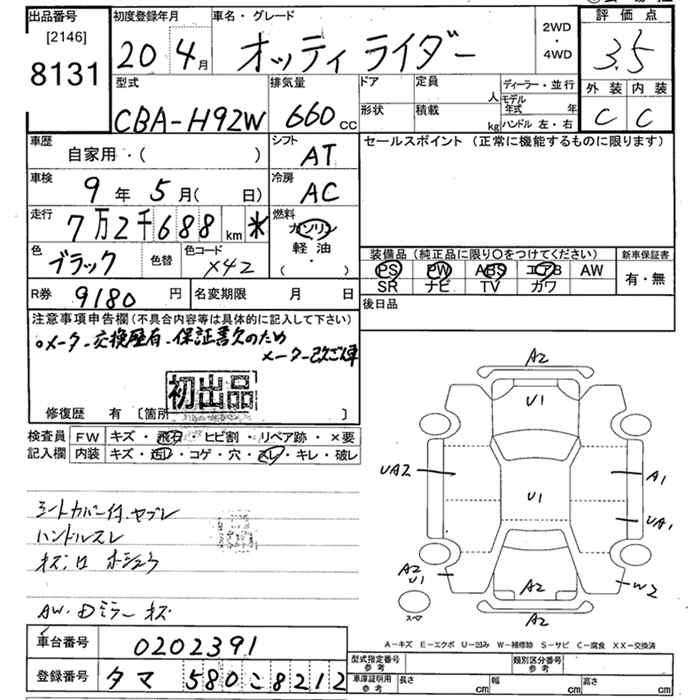 出品番号 初度登録年月 車名・グレード 2WD ・ 4WD 評価点
[2146]
8131 20 4月 オッティ ライダー 3.5
型式 排気量 ドア 定員 人 ディーラー・並行 外装 内装
CBA-H92W 660cc 形状 積載 kg モデル年式 年 ハンドル 左・右 C C
車歴 自家用・( ) シフト AT セールスポイント (正常に機能するものに限ります)
車検 9年 5月( 日) 冷房 AC
走行 7万2千688km * 燃料 ガソリン 軽油 ( ・ )
色 ブラック 色替 色コード X42 装備品 (純正品に限り○をつけてください) 新車保証書
PS PW ABS エアB AW 有・無
SR ナビ TV カワ
R券 9180円 名変期限 月 日 後日品
注意事項申告欄(不具合内容等は具体的に記入して下さい)
メーター交換歴有
メーター改ざん車
初出品
修復歴 有 [箇所 ]
検査員 FW キズ・飛石・ヒビ割・リペア跡・×要
記入欄 内装 キズ・汚レ・コゲ・穴・スレ・キレ・破レ
A2
U1
UA2 A1
U1
UA1
A2 U1 W2
A2
A2
スペア
シートカバー付
ハンドルスレ
AW・Dミラーキズ
A-キズ E-エクボ U-凹み W-補修跡 S-サビ C-腐食 XX-交換済
車台番号 0202391
登録番号 タマ 580こ8212
型式指定番号 参考 類別区分番号 参考
車庫証明用 参考 長さ cm 幅 cm 高さ cm